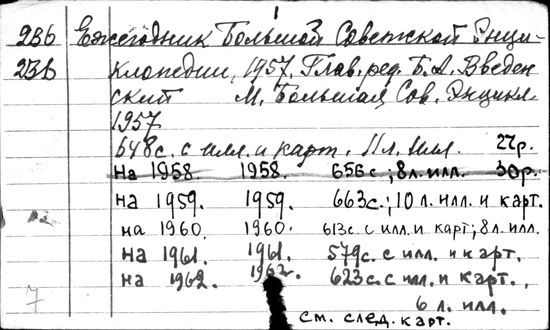 2Э6 Ежегодник Большой Советской Энци-
2Э6 клопедии, 1957. Глав. ред. Б. А. Введен
ский М. Большая Сов. Энцикл.
1957
648с. с илл. и карт. 11 л. илл. 27р.
на 1958. 1958. 656с.; 8 л. илл. 30р.
на 1959. 1959. 663с.; 10 л. илл. и карт.
на 1960. 1960. 613с. с илл. и карт; 8 л. илл.
на 1961. 1961. 579с. с илл. и карт.
на 1962. 1962. 623с. с илл. и карт.,
6 л. илл.
7 см. след. карт.